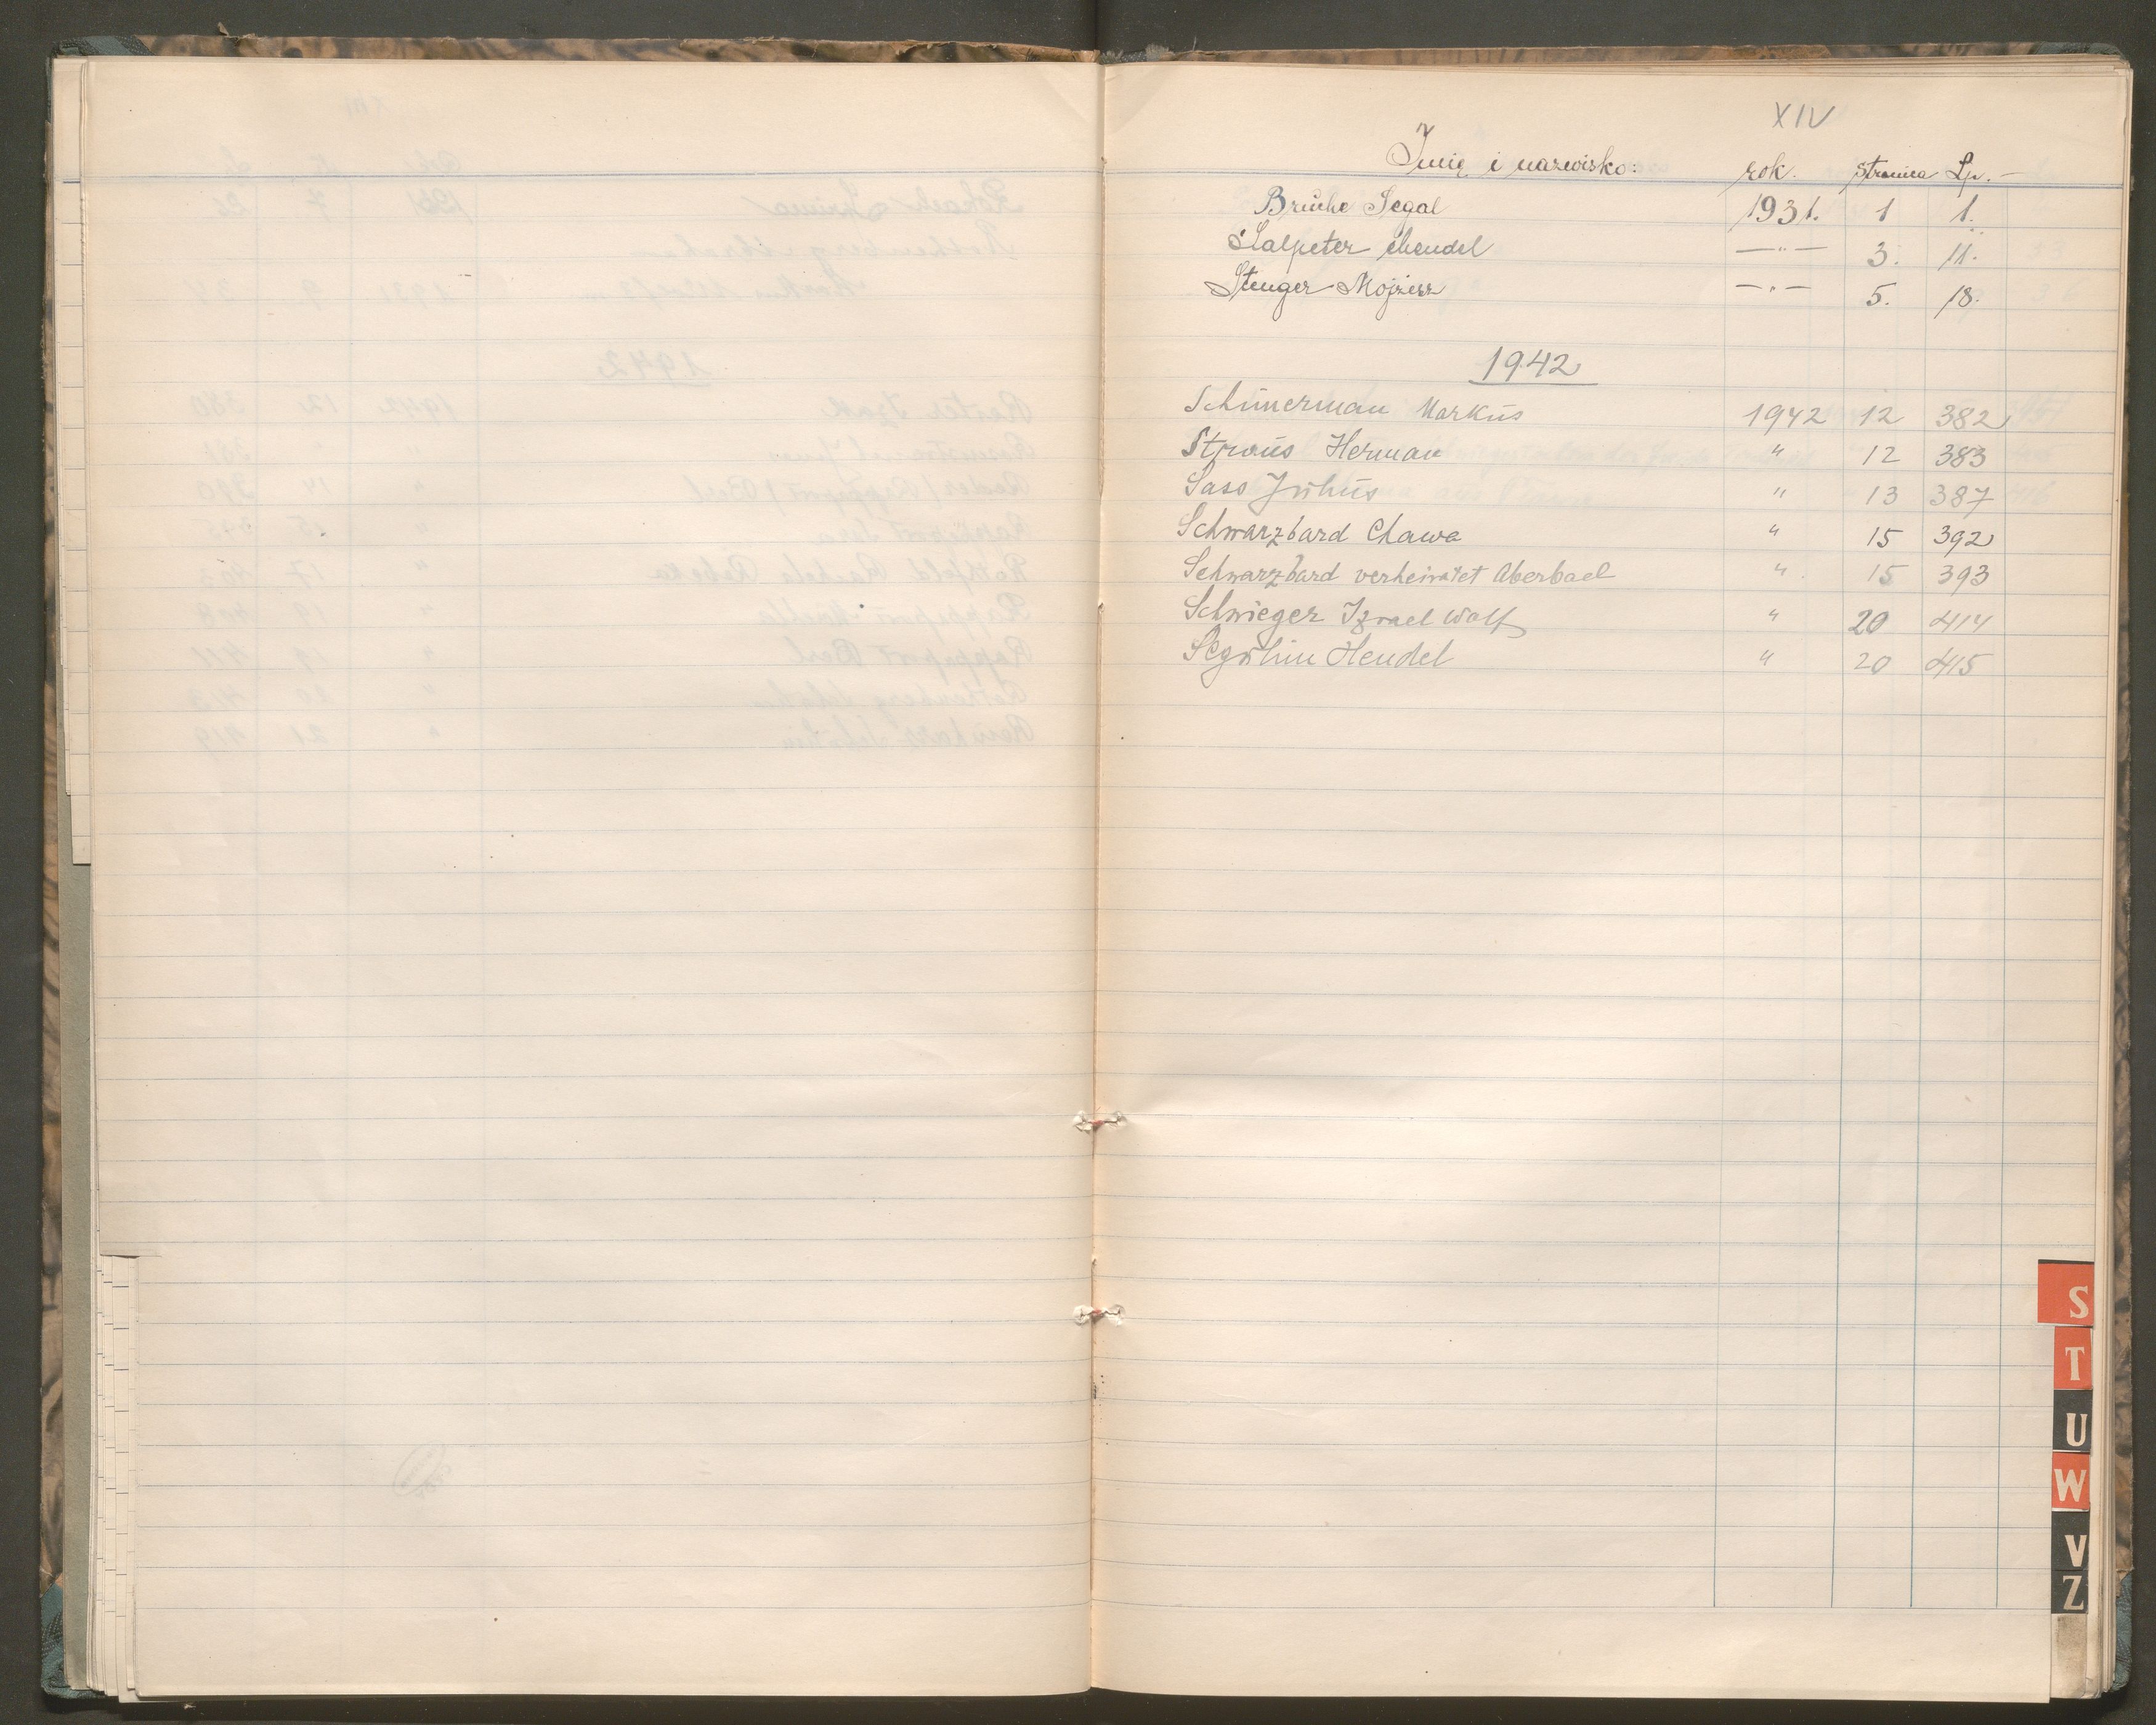 XIV
Imię i nazwisko: rok. Stronica Lp.-
Bruche Segal 1931. 1 1.
Salpeter Mendel —"— 3. 11.
Stenger Mojżesz —"— 5. 18.
1942
Schimerman Markus 1942 12 382
Straus Herman " 12 383
Sass Julius " 13 387
Schwarzbard Chawa " 15 392
Schwarzbard verheiratet Aberbael " 15 393
Schwieger Izrael Wolf " 20 414
Hendel " 20 415
S
T
U
W
V
Z